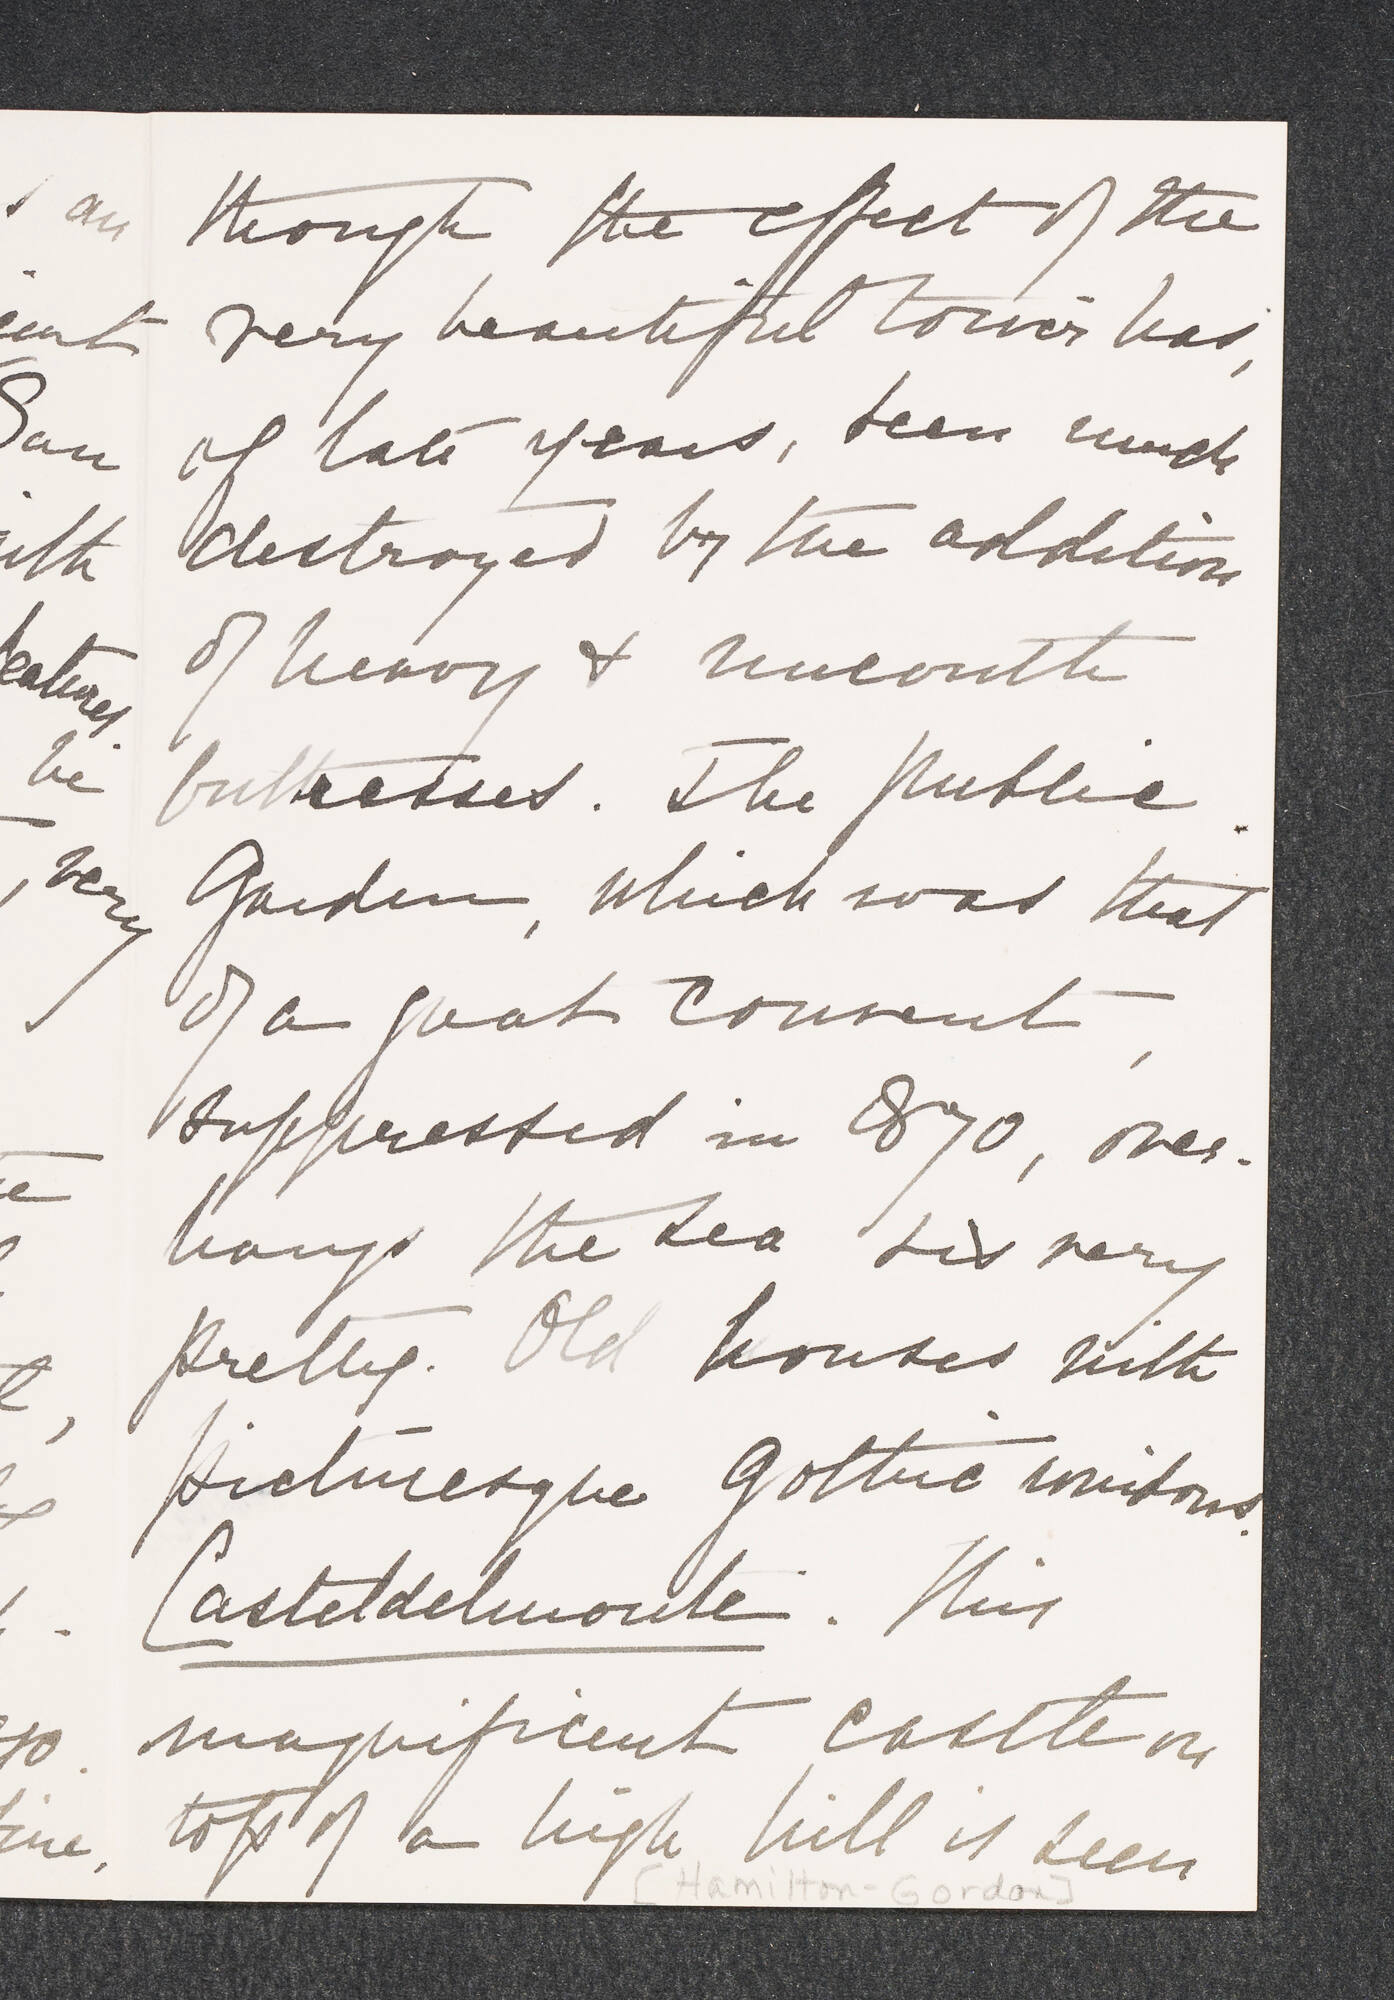 though the effect of the
very beautiful tower has,
of late years, been much
destroyed by the addition
of heavy & uncouth
buttresses. The public
Garden, which was that
of a great convent,
suppressed in 870, over-
hangs the sea & is very
pretty. Old houses with
picturesque Gothic windows.
Casteldelmonte. This
magnificent castle on
top of a high hill is seen
[Hamilton-Gordon]
an
San
with
features.
be
, very